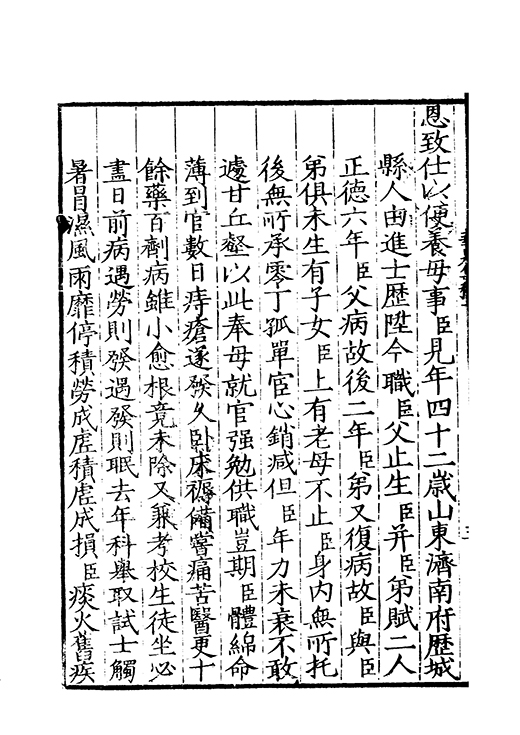 恩致仕以便養母事臣見年四十二歲山東濟南府歷城
縣人由進士歷陞今職臣父止生臣并臣弟賦二人
正德六年臣父病故後二年臣弟又復病故臣與臣
弟俱未生有子女臣上有老母不止臣身内無所托
後無所承零丁孤單宦心銷减但臣年力未衰不敢
遽甘丘壑以此奉母就官强勉供職豈期臣體綿命
薄到官數日痔瘡遂發久卧床褥備嘗痛苦醫更十
餘藥百劑病雖小愈根竟未除又兼考校生徒坐必
盡日前病遇勞則發遇發則眠去年科舉取試士觸
暑冒濕風雨靡停積勞成虗積虗成損臣痰火舊疾